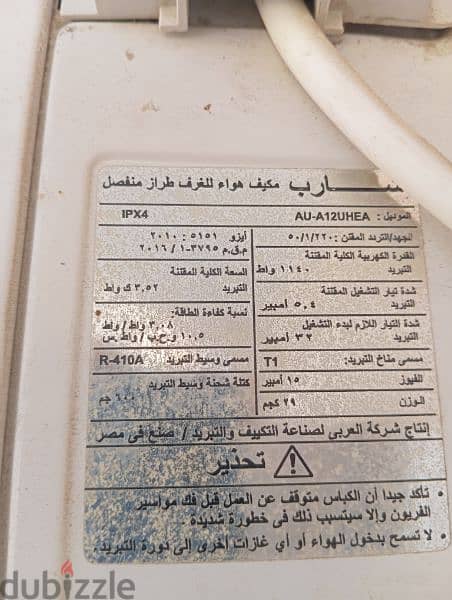 شـــــارب مكيف هواء للغرف طراز منفصل
الموديل : AU-A12UHEA IPX4
الجهد/التردد المقنن : ٥٠/١/٢٢٠
القدرة الكهربية الكلية المقننة
التبريد ١١٤٠ واط
شدة تيار التشغيل المقننة
التبريد ٥.٤ أمبير
شدة التيار اللازم لبدء التشغيل
التبريد ٣٢ أمبير
مسمى مناخ التبريد: T1
الفيوز ١٥ أمبير
الوزن ٢٩ كجم
أيزو ٥١٥١ : ٢٠١٠
م.ق.م ٣٧٩٥-١ / ٢٠١٦
السعة الكلية المقننة
التبريد ٣.٥٢ ك واط
نسبة كفاءة الطاقة:
٣.٠٨ واط / واط
١٠.٥ و.ح.ب/ واط.س
مسمى وسيط التبريد R-410A
كتلة شحنة وسيط التبريد
٦٠٠ جم
إنتاج شركة العربى لصناعة التكييف والتبريد / صنع فى مصر
تحذير
• تأكد جيدا أن الكباس متوقف عن العمل قبل فك مواسير
الفريون وإلا سيتسبب ذلك فى خطورة شديدة
• لا تسمح بدخول الهواء أو أي غازات أخرى إلى دورة التبريد
dubizzle